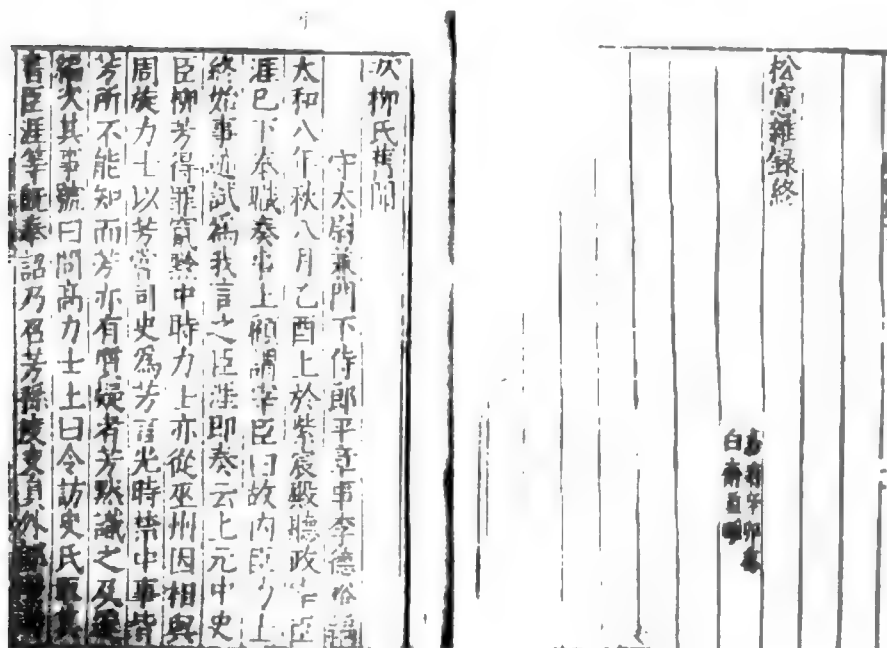 松窻雜録終
次柳氏舊聞
守太尉兼門下侍郎平章事李德裕
太和八年秋八月乙酉上於紫宸殿聽政宰臣
涯已下奉職奏事上顧謂宰臣曰故内臣力士
終始事迹試爲我言之臣涯即奏云上元中史
臣柳芳得罪竄黔中時力士亦從巫州因相與
周旋力士以芳嘗司史爲芳言先時禁中事皆
芳所不能知而芳亦有質疑者芳默識之及還
編次其事號曰問高力士上曰令訪史氏取其
書臣涯等既奉詔乃召芳孫度支員外郎